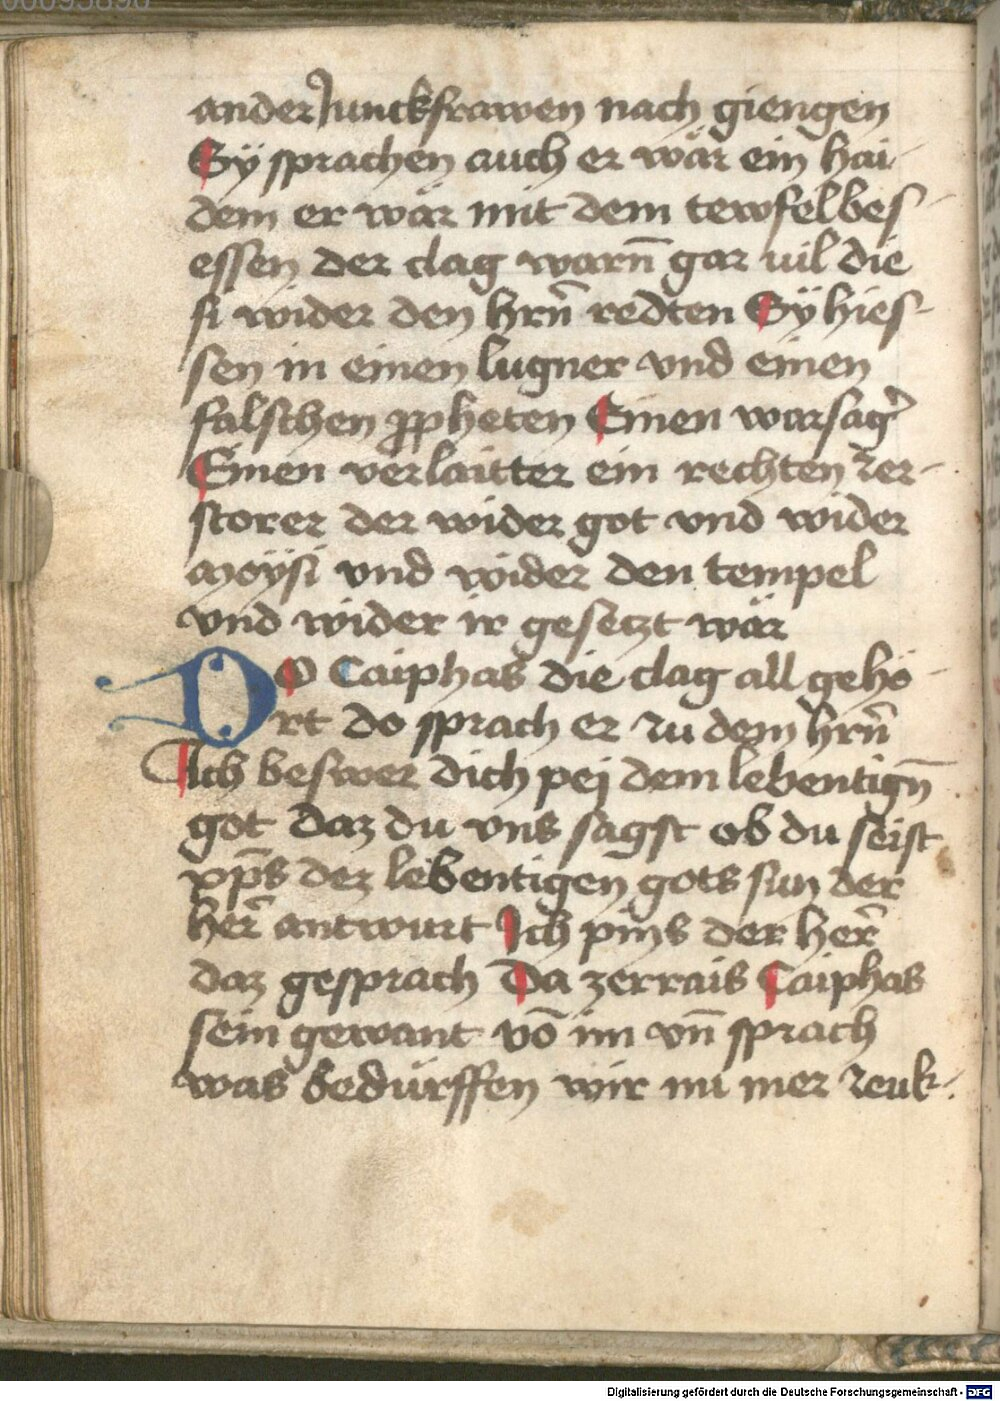 ander Junckfrawen nach giengen
Sÿ sprachen auch er wär ein hai-
dem er wär mit dem tewfel bes-
essen der clag warn̄ gar uil die
si wider den hrn̄ redten Sÿ hies-
sen in einen lugner vnd einen
falschen ꝓpheten Einen warsag̉
Einen verlaitter ein rechten zer-
storer der wider got vnd wider
moÿsi vnd wider den tempel
vnd wider ir gesetzt wär
DO Caiphas die clag all gehö-
rt do sprach er zu dem hrn̄
Ich beswer dich pej dem lebentign̄
got daz du vns sagst ob du seist
xp̄s dez lebentigen gots sun der
her̄ antwurt Ich pins der her̄
daz gesprach Da zerrais Caiphas
sein gewant vō im vn̄ sprach
was bedürffen wir nu mer zeuk-
Digitalisierung gefördert durch die Deutsche Forschungsgemeinschaft - DFG